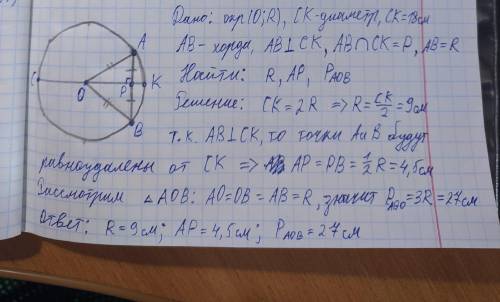 Дано: окр(O;R), CK-диаметр, CK=18см
AB- хорда, AB⊥CK, AB∩CK=P, AB=R
Найти: R, AP, P_AOB
Решение: CK=2R => R=CK/2=9см
т.к. AB⊥CK, то точки A и B будут
равноудалены от CK => AP=PB=1/2R=4,5см
Рассмотрим △AOB: AO=OB=AB=R, значит P_ABO=3R=27см
Ответ: R=9см; AP=4,5см; P_AOB=27см
A
C
O
P
K
B